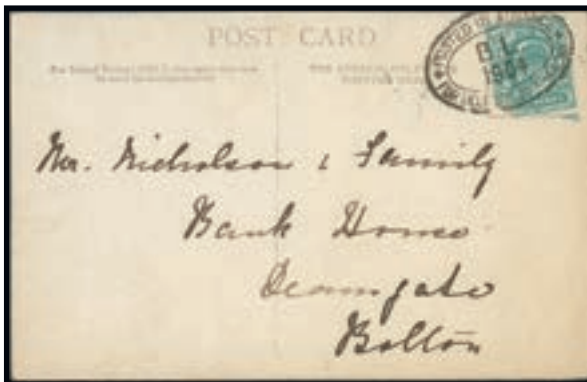 POST CARD
POSTED IN
B.L.
1904
Mr. Nicholson & Family
Bank House
Deansgate
Bolton